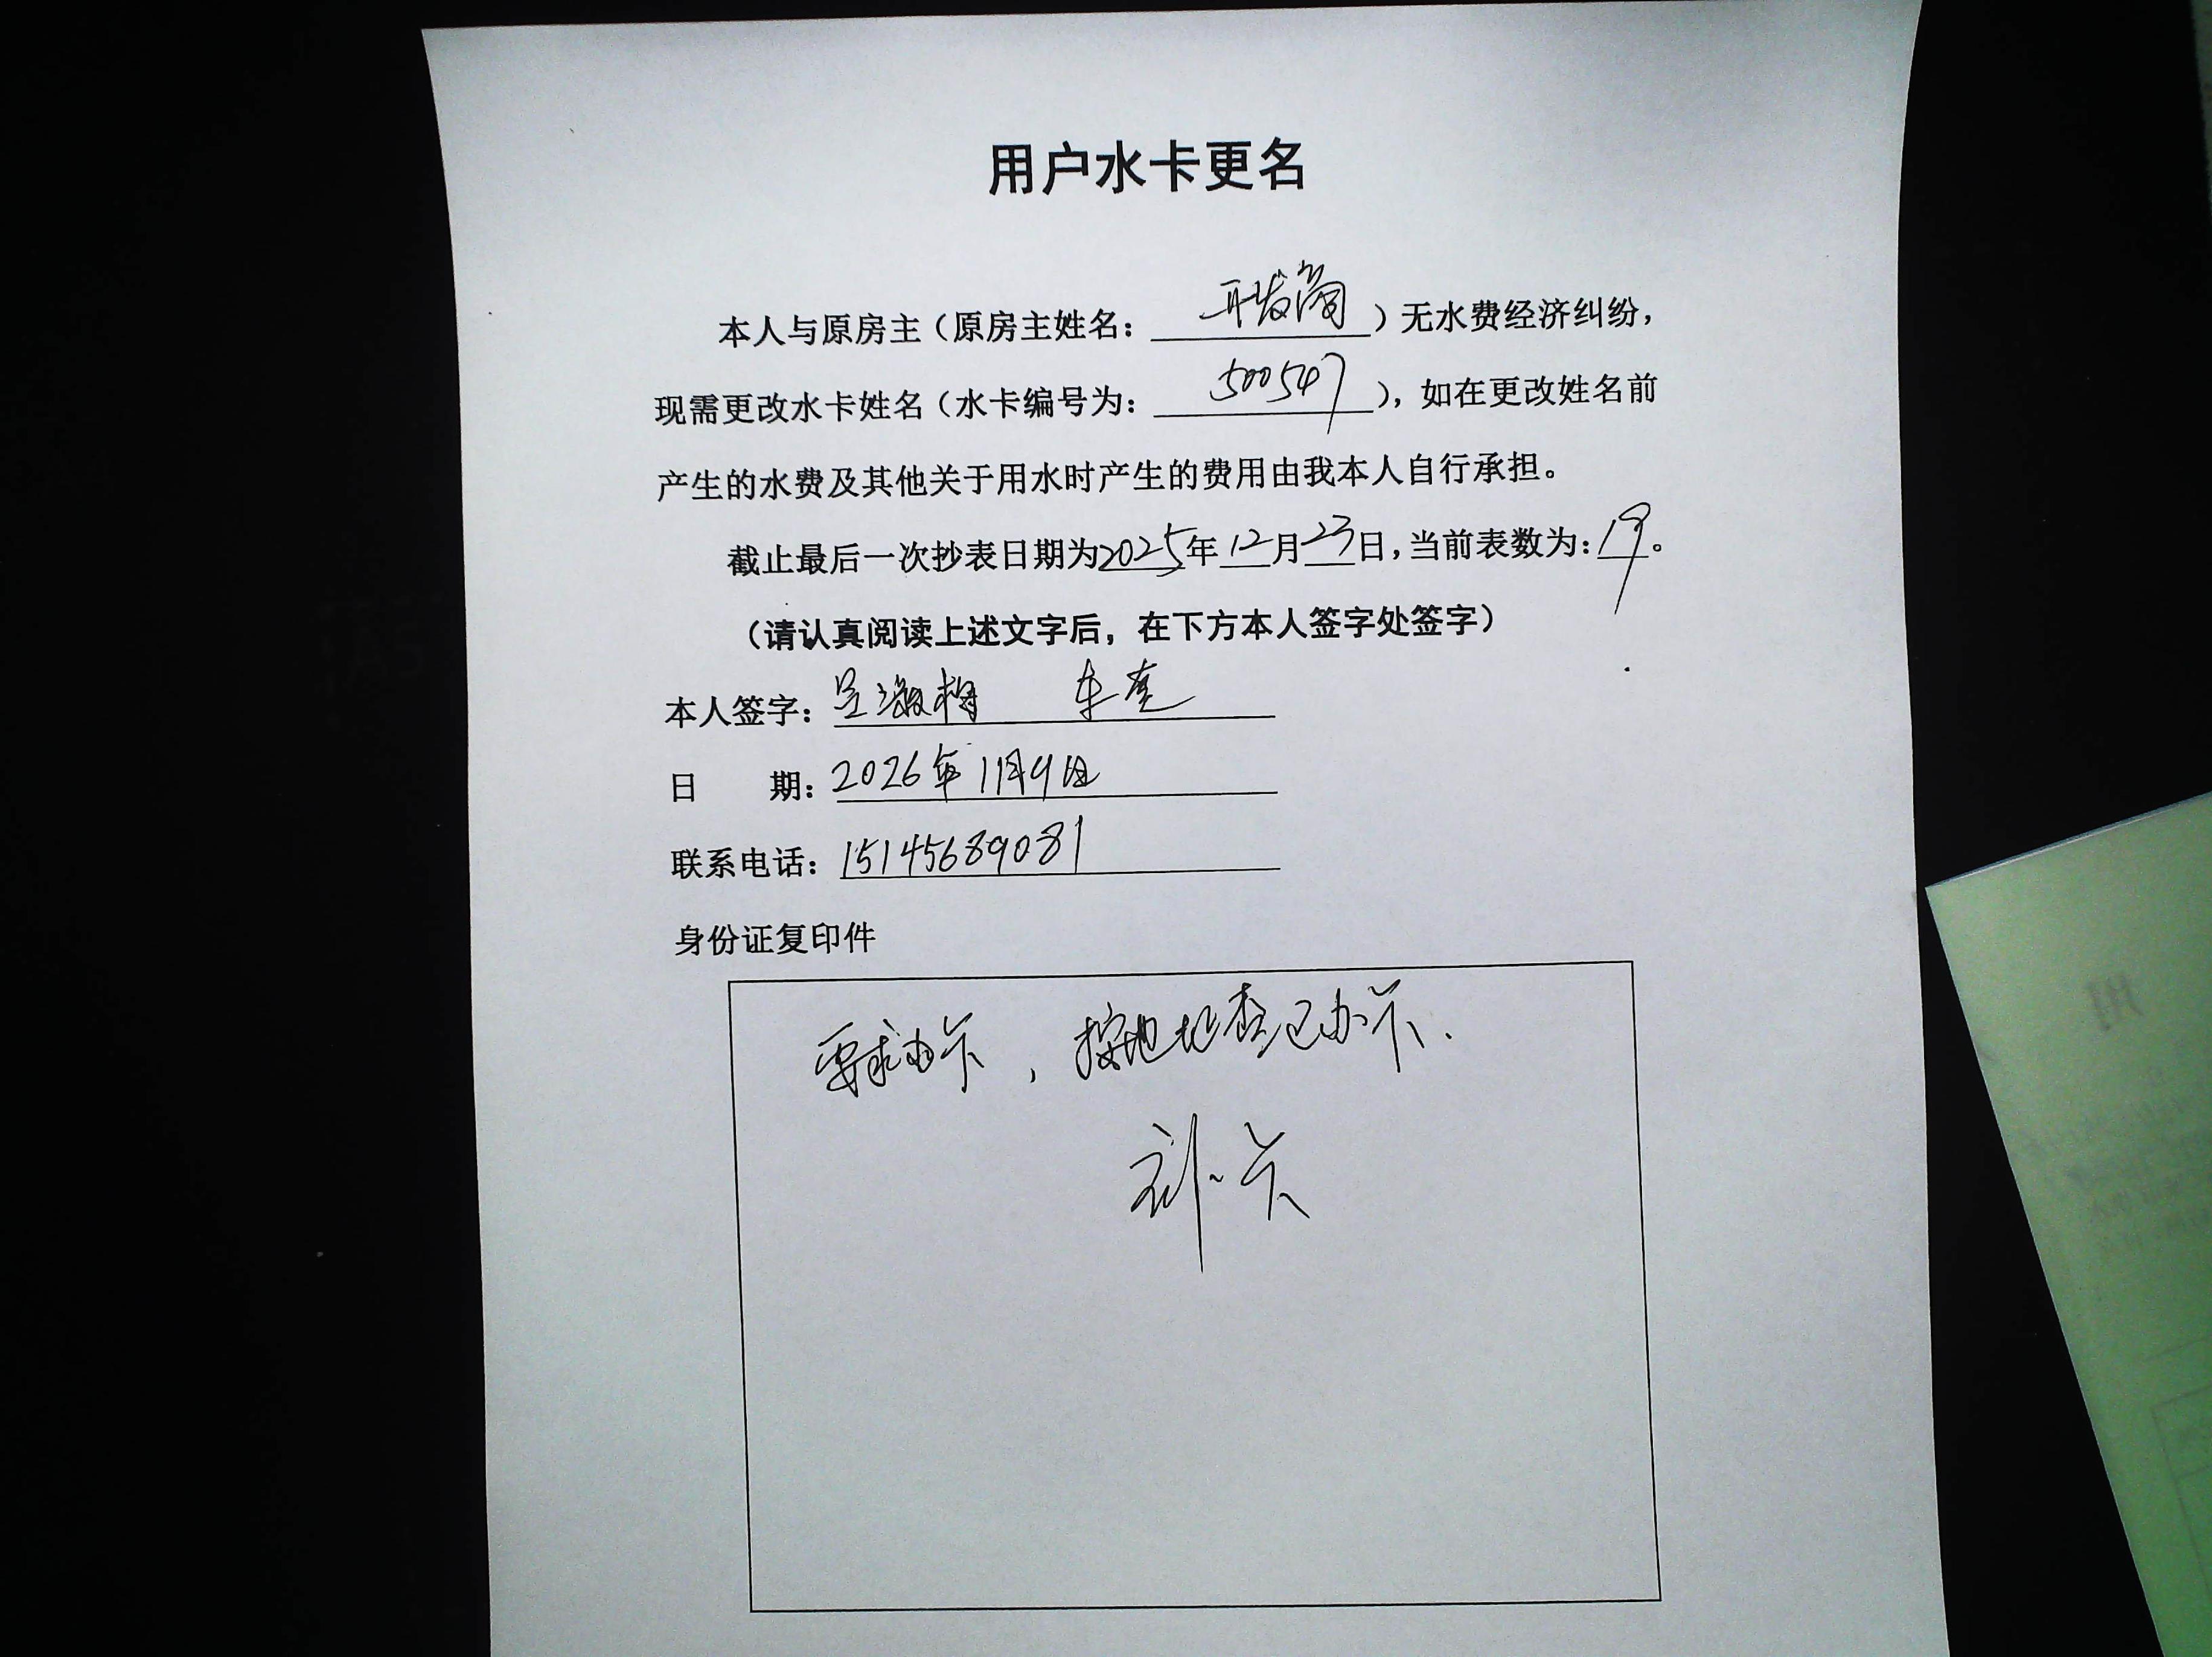 用户水卡更名
本人与原房主（原房主姓名：开发商）无水费经济纠纷，
现需更改水卡姓名（水卡编号为：500547），如在更改姓名前
产生的水费及其他关于用水时产生的费用由我本人自行承担。
截止最后一次抄表日期为2025年12月23日，当前表数为：19。
（请认真阅读上述文字后，在下方本人签字处签字）
本人签字：吴淑梅 车奎
日 期：2026年1月9日
联系电话：15145689081
身份证复印件
要求办卡，按地址查已办卡.
补卡